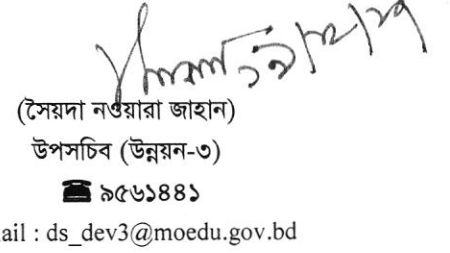 (সৈয়দা নওয়ারা জাহান)
উপসচিব (উন্নয়ন-৩)
☎ ৯৫৬১৪৪১
ail : ds_dev3@moedu.gov.bd